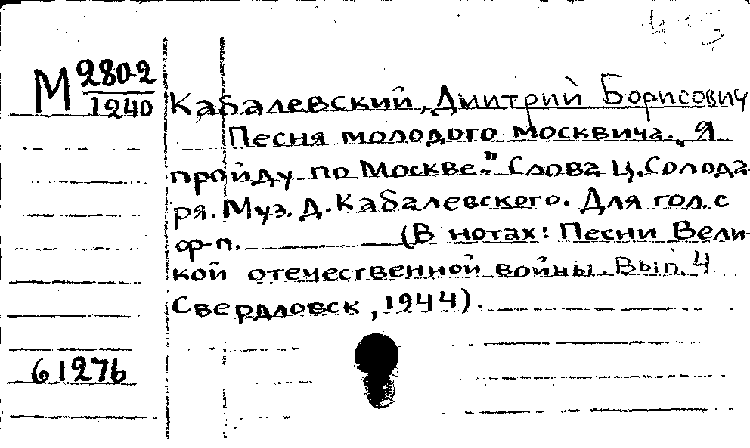 М 2802/1240
Кабалевский, Дмитрий Борисович
Песня молодого москвича. „Я
пройду по Москве." Слова Ц. Солода-
ря. Муз. Д. Кабалевского. Для гол. с
ф-п. (В нотах: Песни Вели-
кой отечественной войны. Вып. 4
Свердловск, 1944).
61276